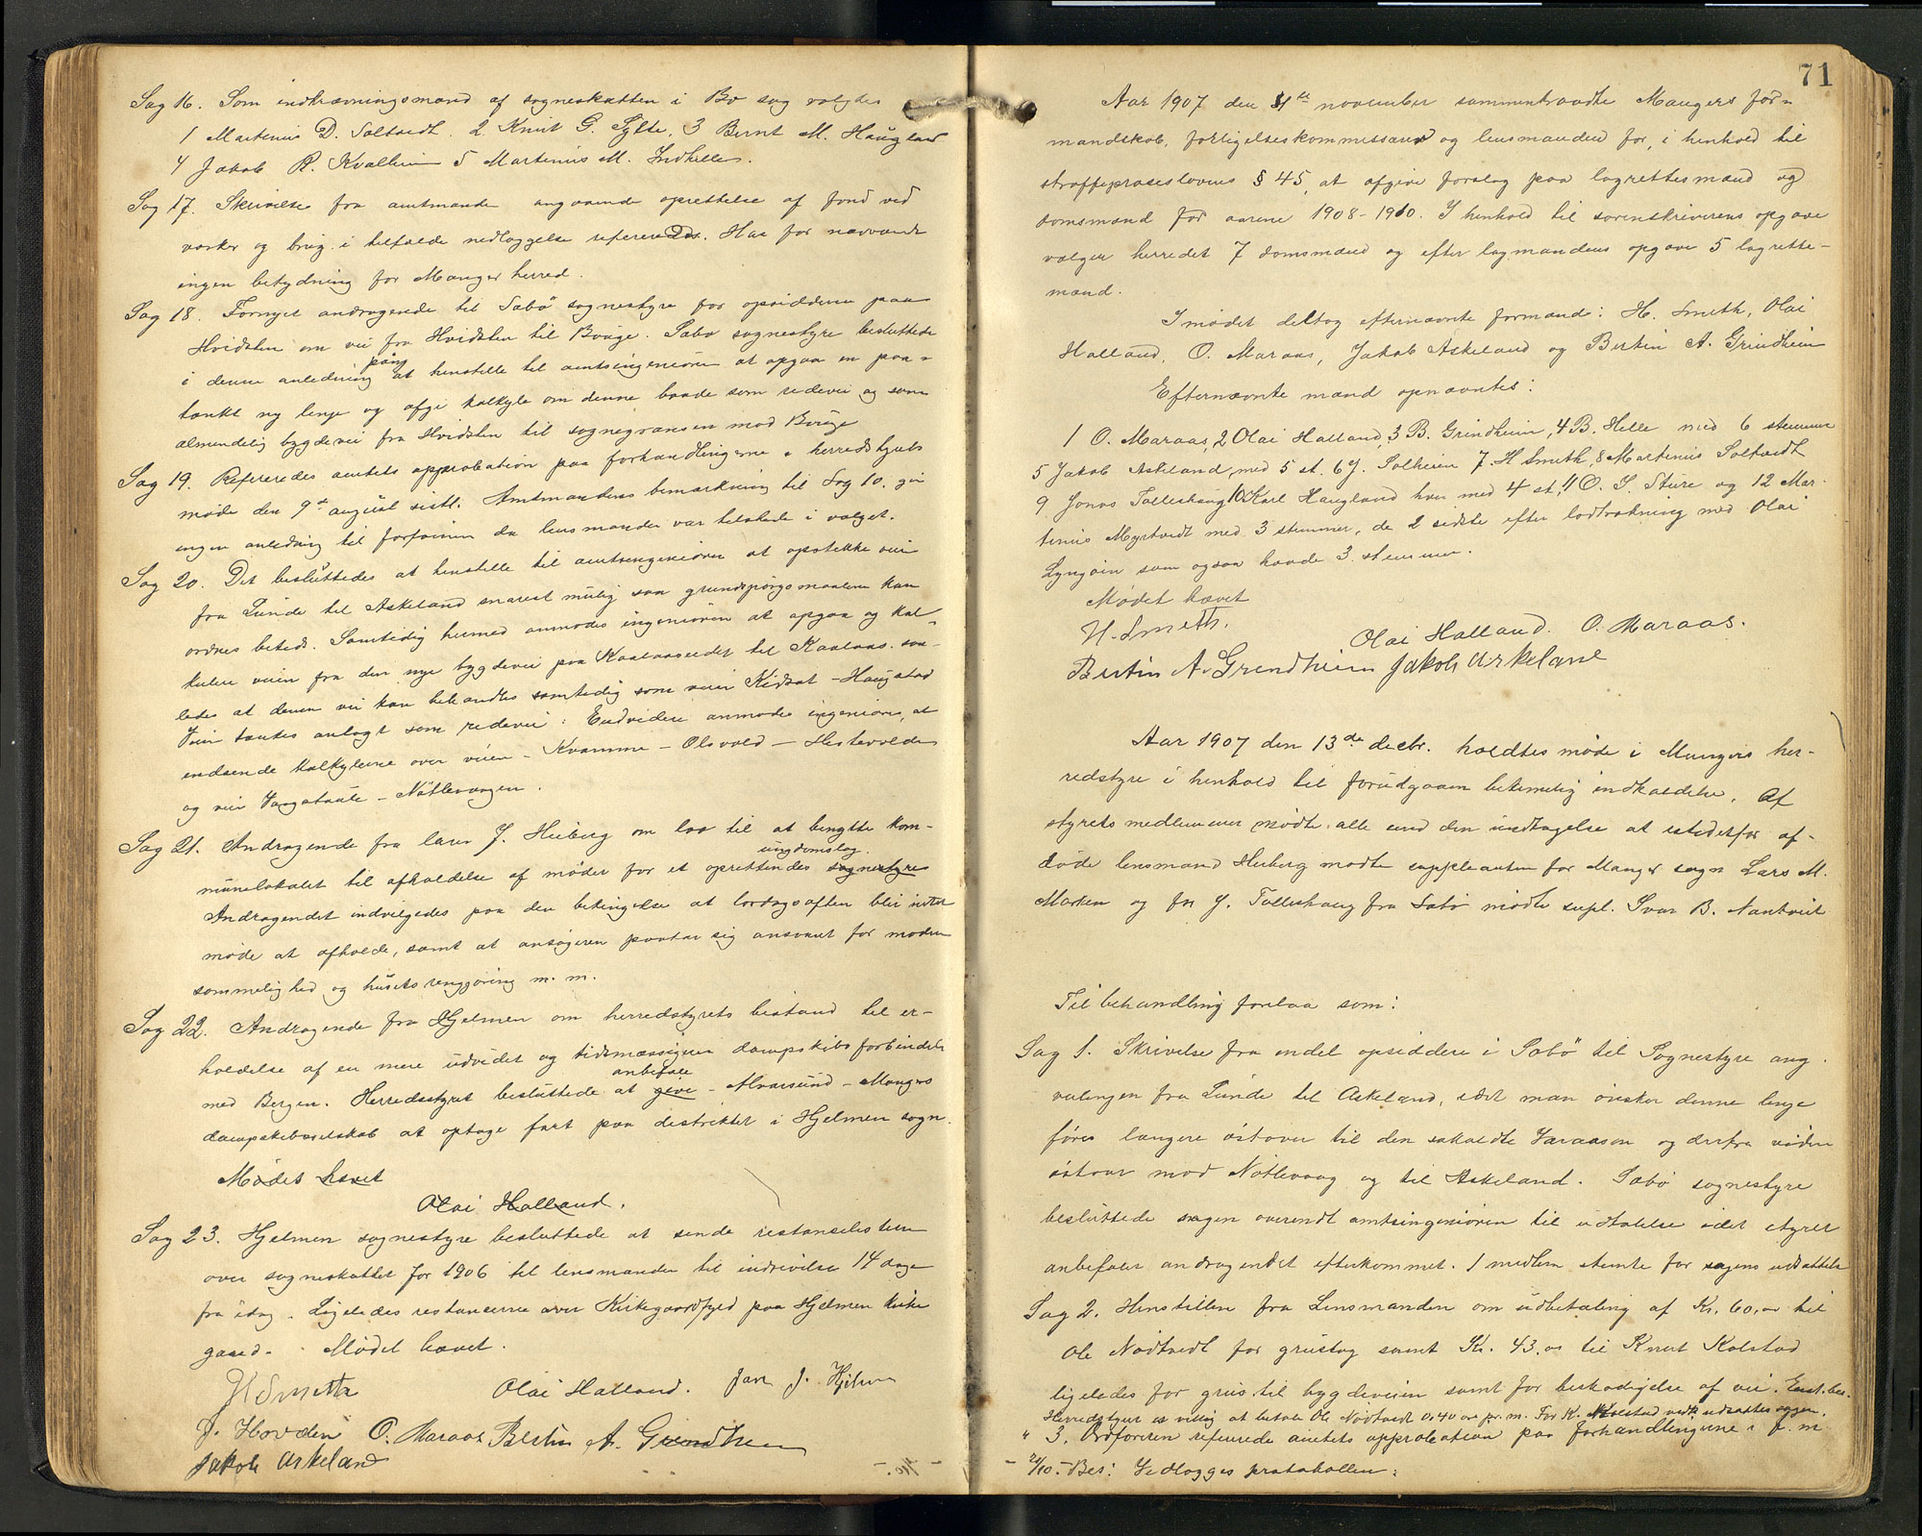 Sag 16. Som indkrævningsmænd af sogneskatten i Bø sog valgtes
1 Martinus D. Soltvedt. 2 Knut G. Sylte, 3 Bernt M. Haugland
4 Jakob R. Kvalheim 5 Martinus M. Indhelle.
Sag 17. Skrivelse fra amtmanden angaaende oprettelse af fond ved
verker og brug i tilfælde nedlæggelse refereredes. Har for nærværende
ingen betydning for Manger herred.
Sag 18. Fornyet andragende til Sæbø sognestyre fra opsidderne paa
Hvidsten om vei fra Hvidsten til Bøuge. Sæbø sognestyre besluttede
i denne anledning paany at henstille til amtsingeniøren at opgaa en paa-
tænkt ny linje og afgi kalkyle om denne baade som ridevei og som
almendelig bygdevei fra Hvidsten til sognegrænsen mod Bøuge
Sag 19. Refereredes amtets approbation paa forhandlingerne i herredstyrets
møde den 9de august sidstl. Amtmandens bemærkning til Sag 10. gir
ingen anledning til forføinin da lensmanden var tilstede i valget.
Sag 20. Det besluttedes at henstille til amtsingeniøren at opstikke vei
fra Lunde til Askeland snarest mulig saa grundspørgsmaalene kan
ordnes betids. Samtidig hermed anmodes ingeniøren at opgaa og kal-
kulere veien fra den nye bygdevei paa Kaalaaseidet til Kaalaas. saa-
ledes at denne vei kan behandles samtidig som veien Kidsat - Haugstad
Veien tænkes anlagt som rideveie: Endvidere anmodes ingeniøren, at
indsende kalkylerne over veien - Kvamme - Olsvold - Hestevolden
og vei Vagatræte - Nøtlevaagen.
Sag 21. Andragende fra lærer J. Heiberg om lov til at benytte kom-
munelokalet til afholdelse af møder for et oprettendes sognestyre ungdomslag.
Andragendet indvilgedes paa den betingelse at lørdagsaften blir intet
møde at afholde, samt at ansøgeren paatar sig ansvaret for mødere
sommelighed og husets rengjøring m. m.
Sag 22. Andragende fra Hjelmen om herredstyrets bistand til er-
holdelse af en mere udvidet og tidsmæssigere dampskibsforbindelse
med Bergen. Herredsstyret besluttede at give anbefale - Alversund - Mangers
dampskibsselskab at optage fart paa distriktet i Hjelmen sogn.
Mødet hævet
Olai Halland.
Sag 23. Hjelmen sognestyre besluttede at sende restanselisten
over sogneskattet for 1906 til lensmanden til inddrivelse 14 dage
fra idag. Ligeledes restancerne over Kirkegaardfred paa Hjelmen kirke
gaard. Mødet hævet.
H Smeth Olai Halland. Jan J. Hjelmen
J. Hovden O. Maraas Bertin A. Grendheim
Jakob Askeland
71
Aar 1907 den 4te november sammentraadte Mangers for-
mandskab, forligelseskommissærer og lensmanden for, i henhold til
straffeproseslovens § 45, at afgive forslag paa lagrettesmænd og
domsmænd for aarene 1908-1910. I henhold til sorenskriverens opgave
vælger herredet 7 domsmænd og efter lagmandens opgave 5 lagrette-
mænd.
I mødet deltog efternævnte formænd: H. Smeth, Olai
Halland, O. Maraas, Jakob Askeland og Bertin A. Grindheim
Efternævnte mænd opnævntes:
1 O. Maraas, 2 Olai Halland, 3 B. Grindheim, 4 B. Helle med 6 stemmer
5 Jakob Askeland, med 5 st. 6 J. Solheim 7. H Smeth, 8 Martinus Soltvedt
9 Jonas Tolleshaug 10 Karl Haugland hver med 4 st, 11 O. S. Sture og 12 Mar-
tinus Myrtvedt med 3 stemmer, de 2 sidste efter lodtrækning med Olai
Lyngøin som ogsaa havde 3. stemmer.
Mødet hævet
H. Smeth. Olai Halland. O. Maraas.
Bertin A. Grendheim Jakob Askeland
Aar 1907 den 13de decbr. holdtes møde i Mangers her-
redstyre i henhold til forudgaaen betimelig indkaldelse. Af
styrets medlemmer mødte alle med den undtagelse at istedetfor af-
døde lensmand Heiberg mødte suppleanten for Manger sogn Lars M.
Marken og for J. Tolleshaug fra Sæbø mødte supl. Ivar B. Nautveit
Til behandling forelaa som:
Sag 1. Skrivelse fra endel opsiddere i Sæbø til Sognestyre ang.
veilengen fra Lunde til Askeland, idet man ønsker denne linje
føres længere østover til den sakaldte Varaasen og derfra videre
østover mod Nøtlevaag og til Askeland. Sæbø sognestyre
besluttede sagen oversendt amtsingeniøren til udtalelse idet styret
anbefaler andragendet efterkommet. 1 medlem stemte for sagens udsættelse
Sag 2. Henstillen fra Lensmanden om udbetaling af Kr. 60,00 til
Ole Nødtvedt for grustag samt Kr. 43.00 til Knut Kolstad
ligeledes for grus til bygdeveien samt for beskadigelse af vei. Enst. bes.
Herredstyret er villig at betale Ole Nødtvedt 0,40 øre pr. m. For K. Kolstad vedk. udsættes sagen.
" 3. Ordføreren refererede amtets approbation paa forhandlingerne i f. m.
- 21/10. - Bes: Vedlægges protokollen.